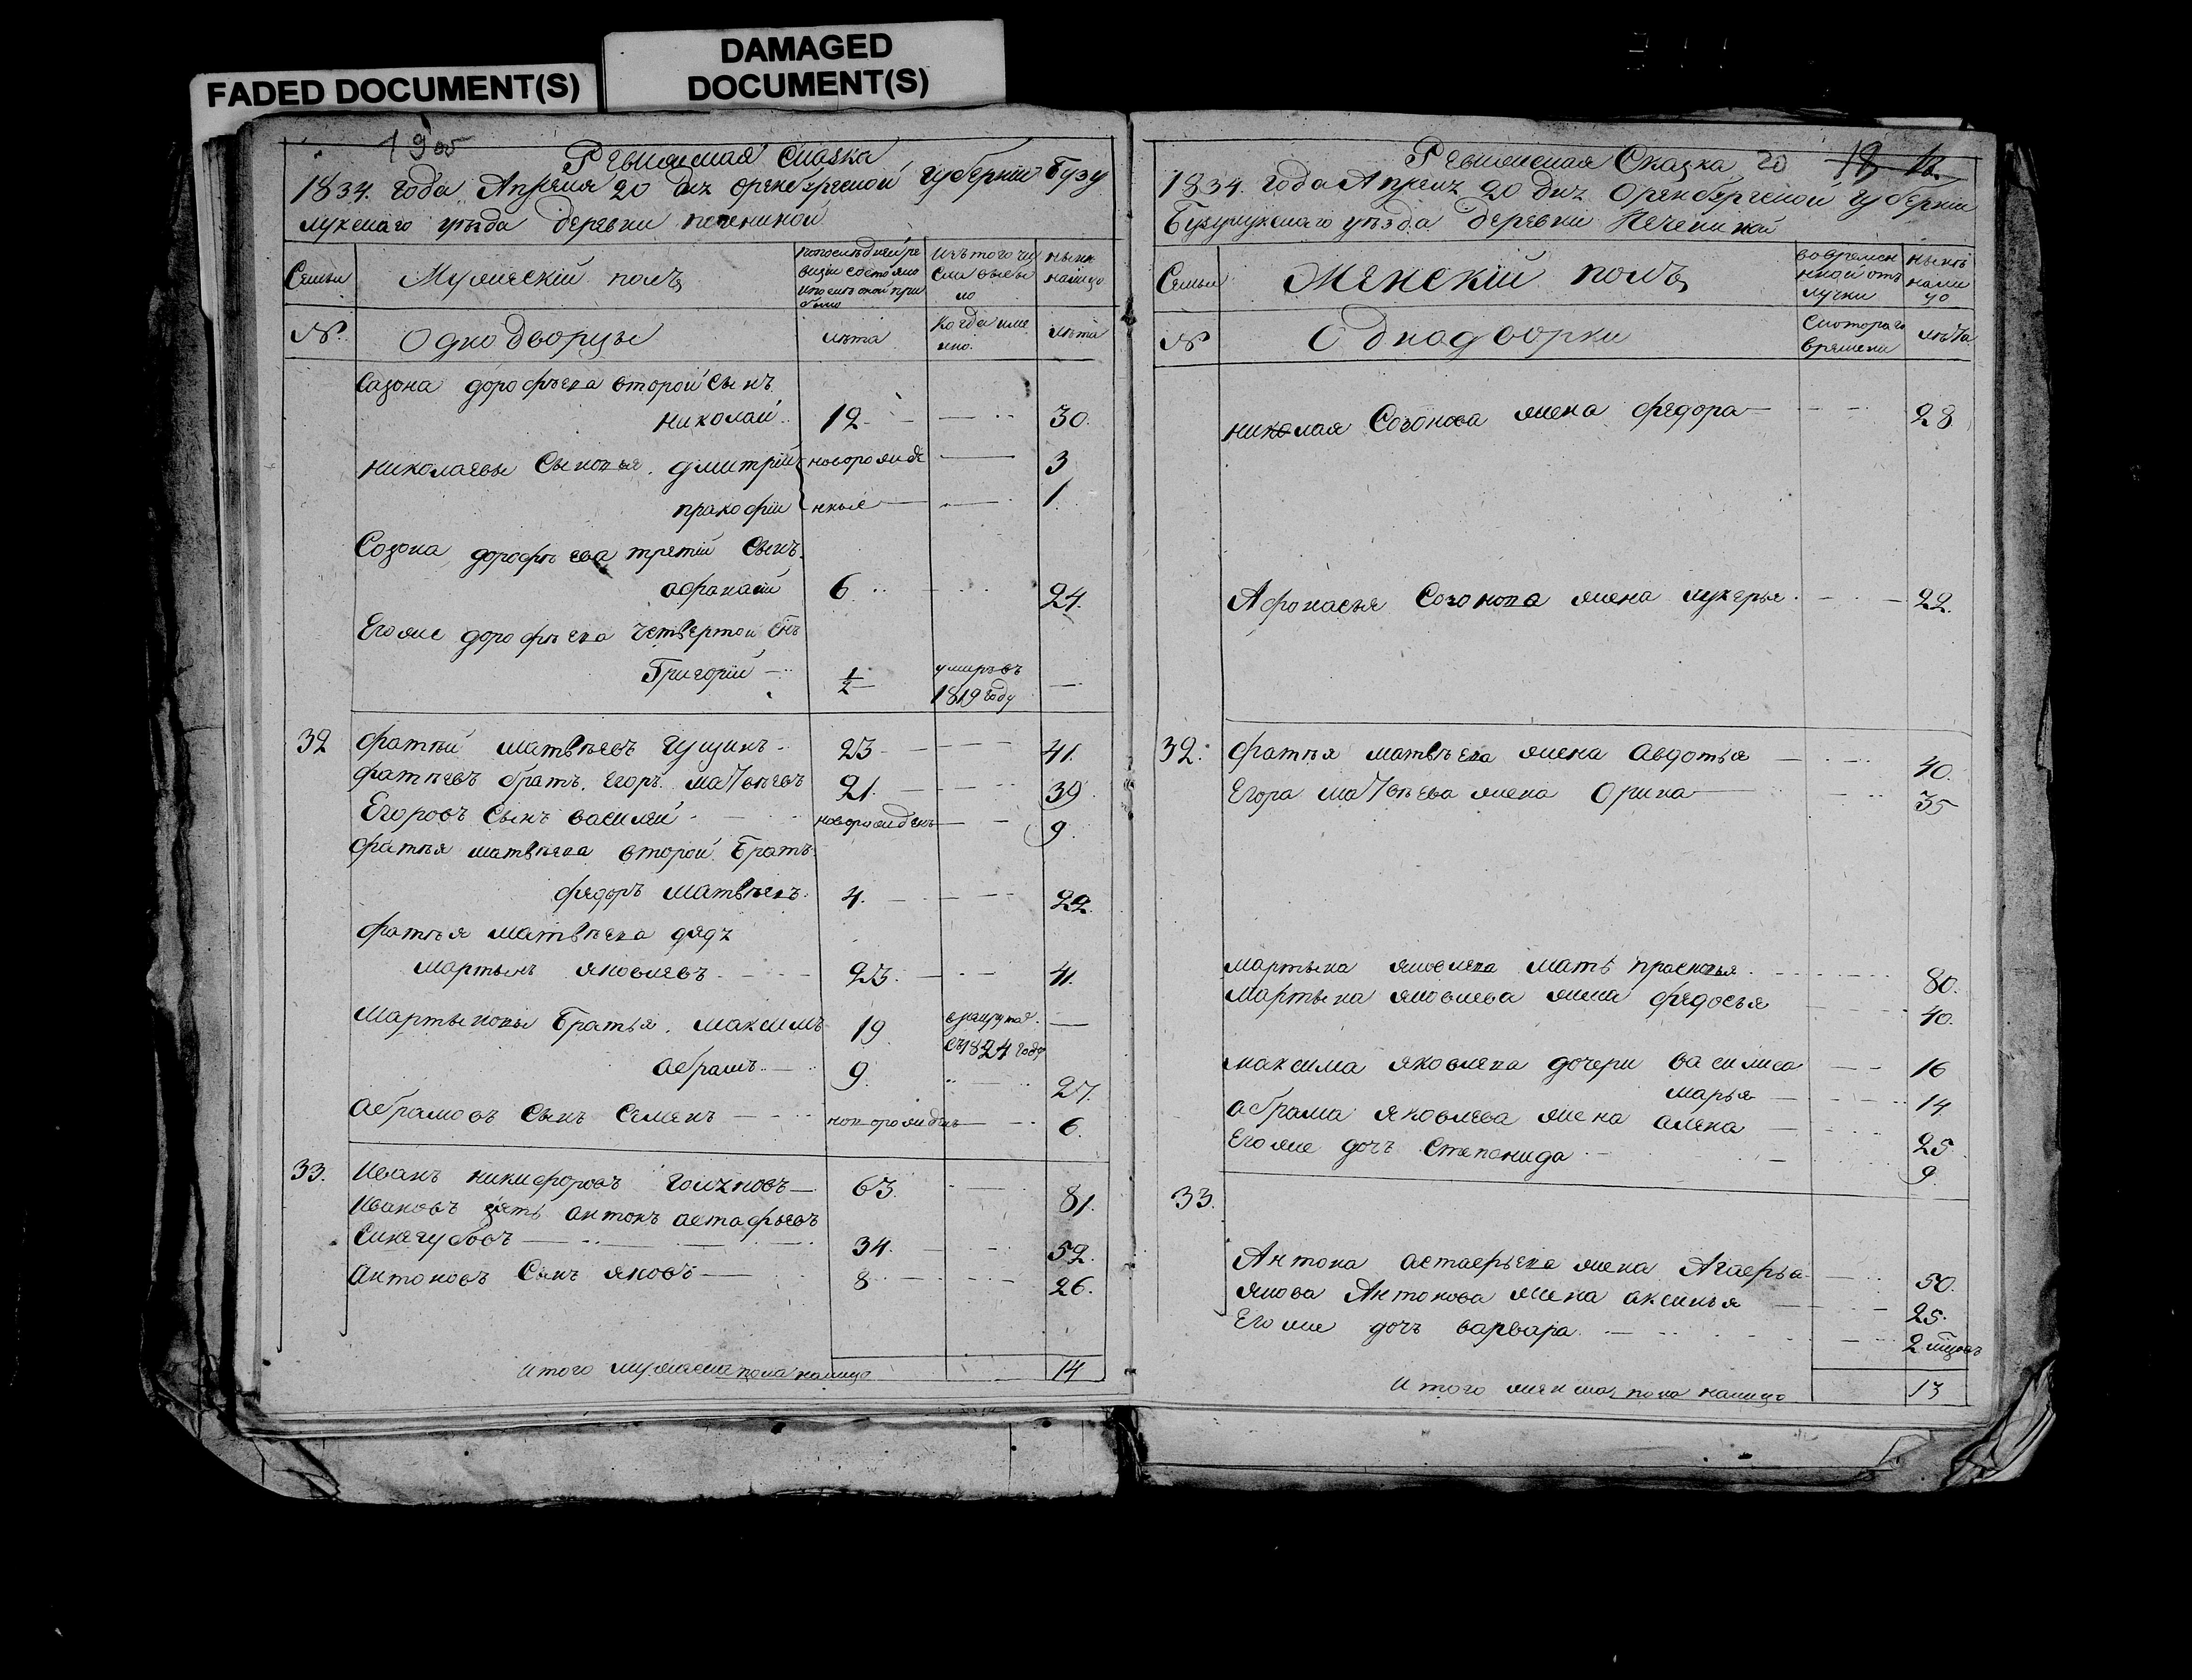 FADED DOCUMENT(S)
DAMAGED
DOCUMENT(S)
19 об
Ревижская Сказка
1834. года Апреля 20 дня Оренбергской губернии Бузу
лукскаго уѣзда деревни печениной
Семьи
Мужескій полъ
по последней ре
визіи состояло
и после оной при
было
Изъ того чи
сла выбы
ло
ныне
налицо
№.
Однодворцы
лѣта
Когда име
нно.
лѣта
Сазона дорофѣева второй сынъ
николай 12 30.
николаевы Сыновья. дмитрій новорожде 3
пракофій нные 1.
Созона дорофѣева третій Сынъ.
афанасій 6 24.
Егоже дорофѣева четвертой сынъ
Григорій ½ умиръ въ
1819 году
32 фатѣй матвѣевъ гущинъ 23 41.
фатѣевъ братъ. Егоръ. матвѣевъ 21. 39.
Егоровъ Сынъ василей новорожденъ 9.
фатѣя матвѣева второй братъ
федоръ матвѣевъ. 4. 22.
фатѣя матвѣева дядя
мартынъ яковлевъ 23. 41.
мартыновы братья. максимъ 19
съ 1824 года
абрамъ 9. 27.
абрамовъ сынъ Семенъ новорожденъ 6.
33. Иванъ никифоровъ 63. 81.
Ивановъ зять антонъ астафьевъ
Синегубовъ 34. 52.
антоновъ Сынъ яковъ 8 26.
Итого мужеска пола налицо 14
Ревижская Сказка 20
1834. года Апреля 20 дня Оренбергской губерніи
Бузулукскаго уѣзда деревни Печениной
Семьи
Женскій полъ
во времен
нной от
лучки
ныне
нали
цо
№
Однодворки
Скотораго
времени
лѣта
николая Созонова жена федора 28
Афонасья Созонова жена лукерья 22.
32. фатѣя матвѣева жена Авдотья 40.
Егора матвѣева жена Орина 35
мартына яковлева мать прасковья 80.
мартына яковлева жена федосья 40.
максима яковлева дочери василиса 16
марья 14
абрама яковлева жена алена 25
Егоже дочь Степонида 9.
33.
Антона астафьева жена Агафья 50.
якова Антонова жена аксинья 25.
Егоже дочь варвара 2
Итого женска пола налицо 13